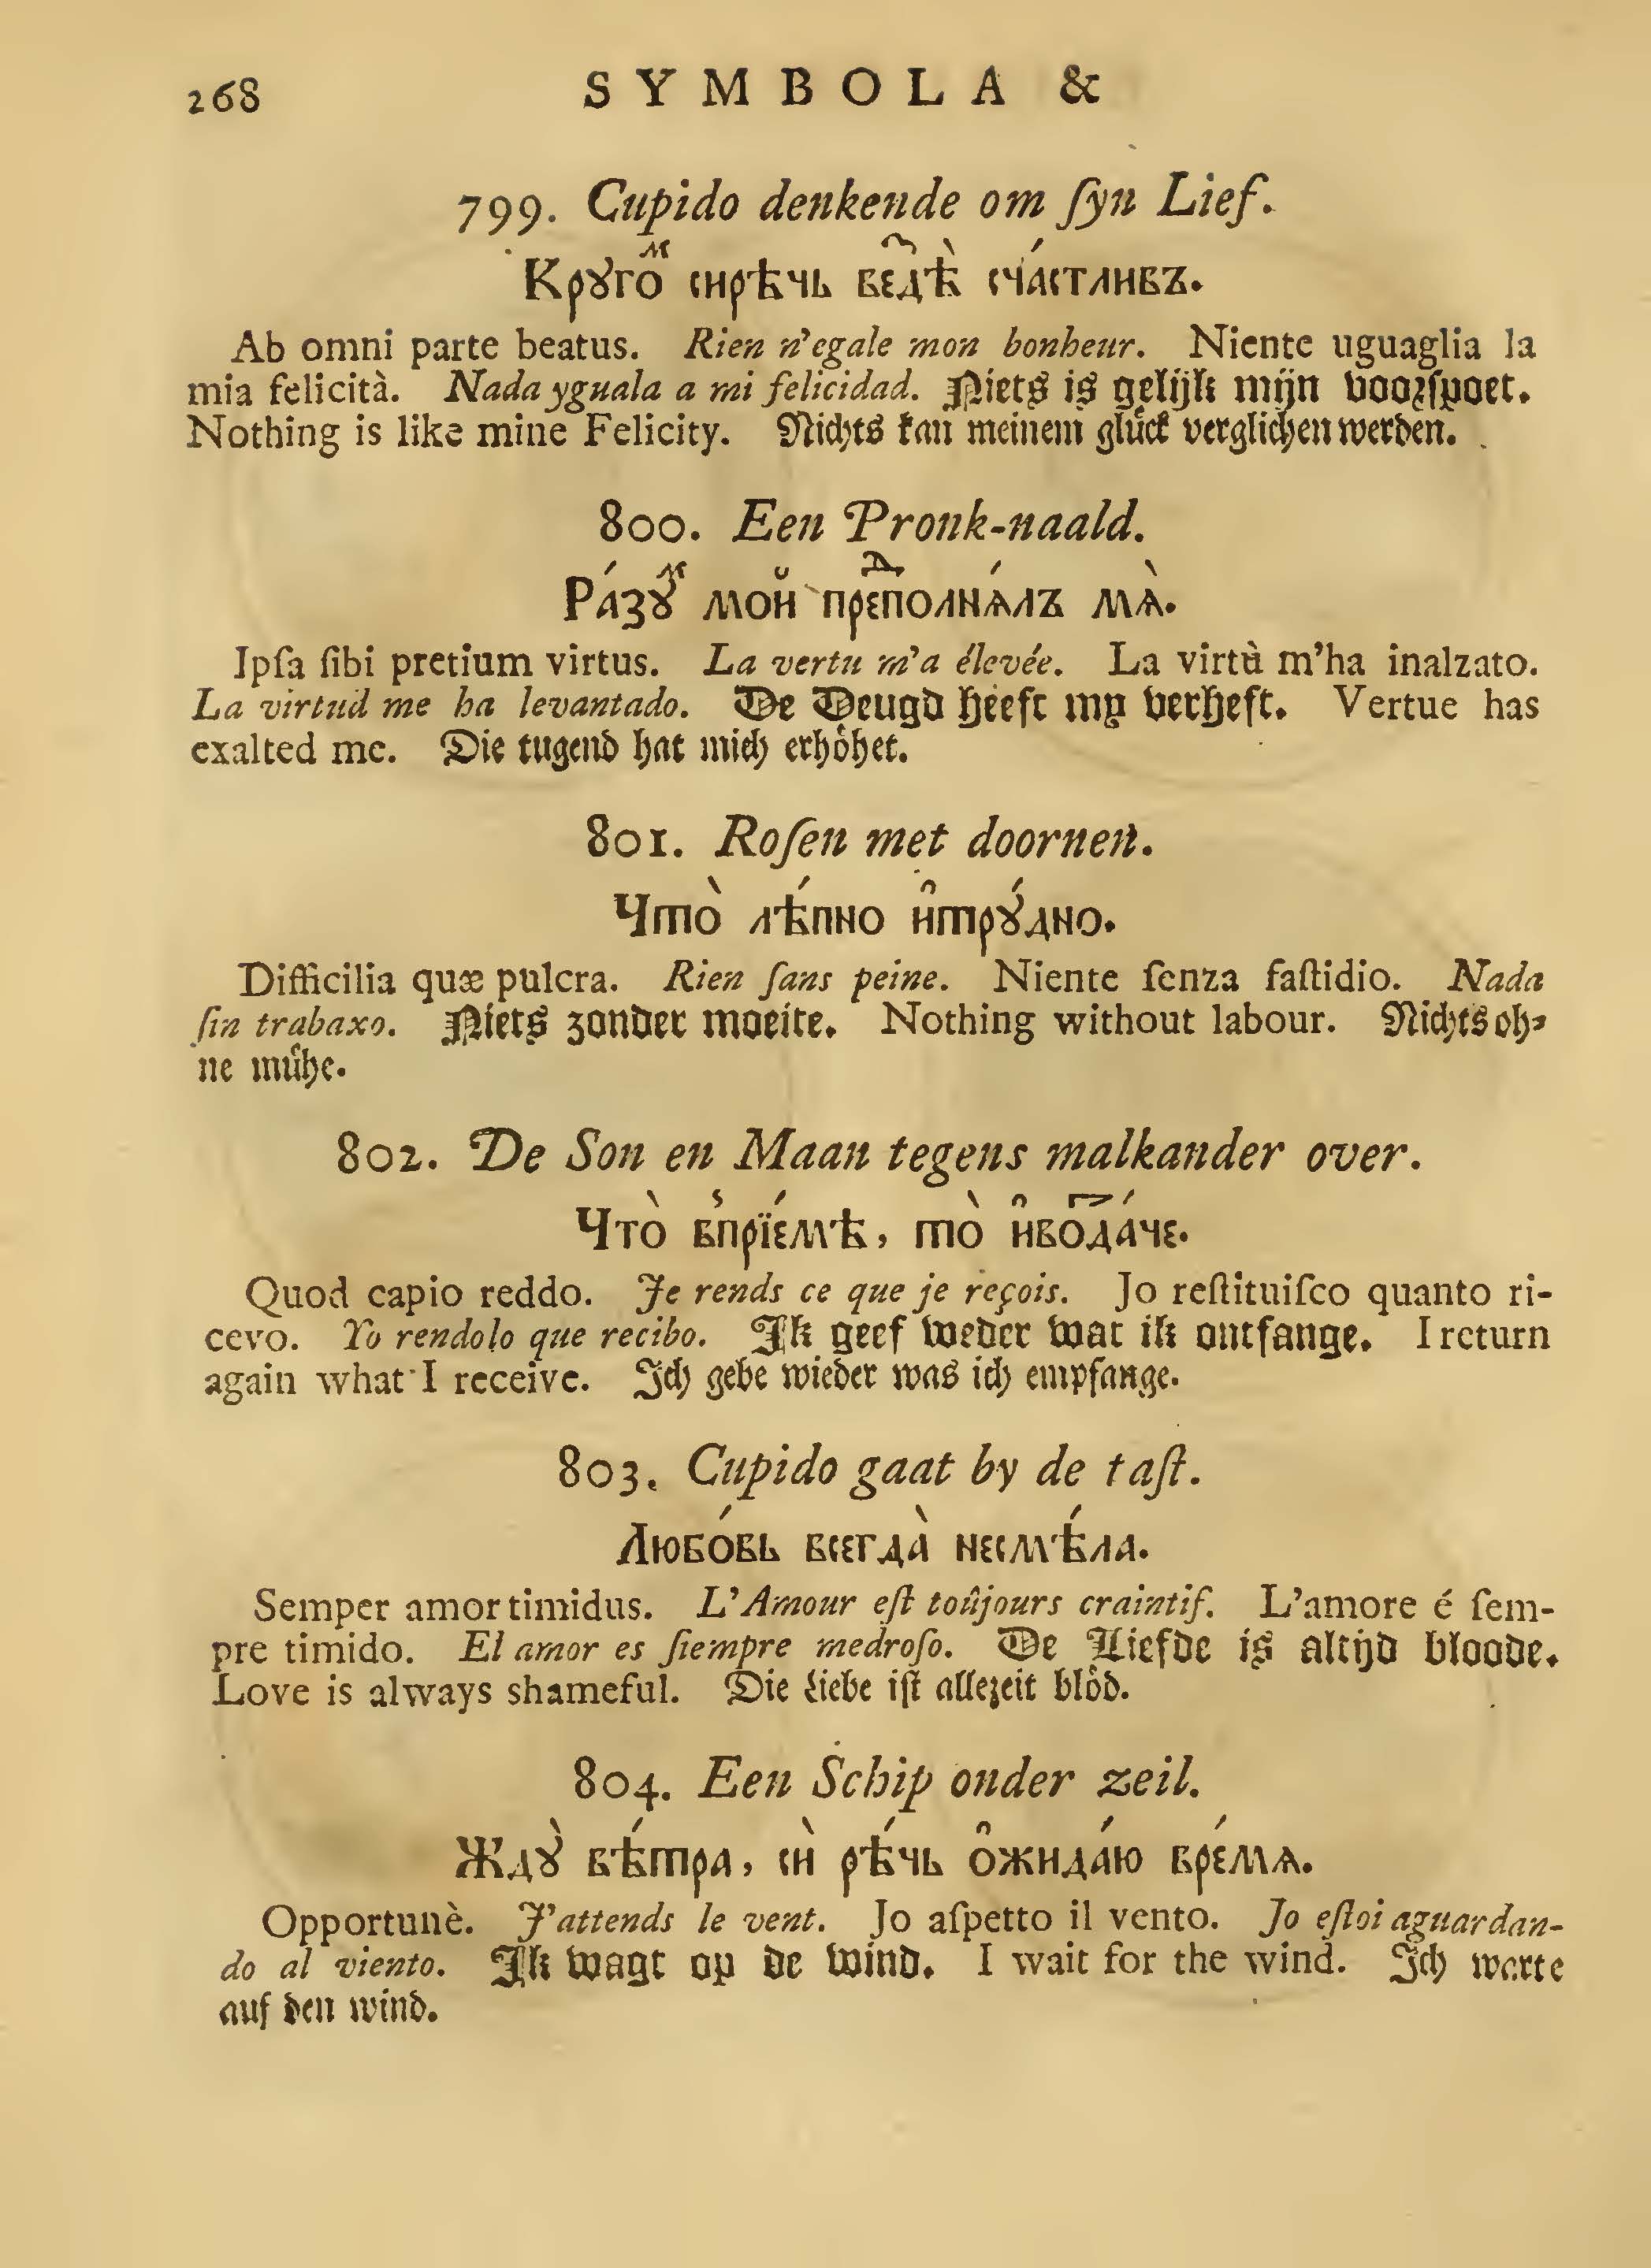 268 SYMBOLA &
799. Cupido denkende om ſyn Lief.
Крꙋго́ⷨ сирѣчь веⷥдѣ̀ сча́стливъ.
Ab omni parte beatus. Rien n'egale mon bonheur. Niente uguaglia la
mia felicità. Nada yguala a mi felicidad. Niets is gelijk mijn voorſpoet.
Nothing is like mine Felicity. Nichts kan meinem glůck verglichen werden.
800. Een Pronk-naald.
Ра́зꙋⷨ мой преⷣполнѧ́лъ мѧ̀.
Ipſa ſibi pretium virtus. La vertu m'a élevée. La virtù m'ha inalzato.
La virtud me ha levantado. De Deugd heeft my verheft. Vertue has
exalted me. Die tugend hat mich erhöhet.
801. Roſen met doornen.
Что̀ лѣ́пно и҆трꙋ́дно.
Difficilia quæ pulcra. Rien ſans peine. Niente ſenza faſtidio. Nada
ſin trabaxo. Niets zonder moeite. Nothing without labour. Nichts oh-
ne mühe.
802. De Son en Maan tegens malkander over.
Что̀ впрїе́мѣ, то̀ и҆воⷥда́че.
Quod capio reddo. Je rends ce que je reçois. Jo reſtituiſco quanto ri-
cevo. Yo rendolo que recibo. Ik geef weder wat ik ontfange. I return
again what I receive. Ich gebe wieder was ich empfange.
803. Cupido gaat by de taſt.
Любо́вь всегда̀ несмѣ́ла.
Semper amor timidus. L'Amour eſt toûjours craintif. L'amore é ſem-
pre timido. El amor es ſiempre medroſo. De Liefde is altijd bloode.
Love is always shameful. Die Liebe iſt allezeit blöd.
804. Een Schip onder zeil.
Ждꙋ̀ вѣ́тра, сѝ рѣ́чь о҆жида́ю вре́мѧ.
Opportunè. J'attends le vent. Jo aſpetto il vento. Jo eſtoi aguardan-
do al viento. Ik wagt op de wind. I wait for the wind. Ich warte
auf den wind.